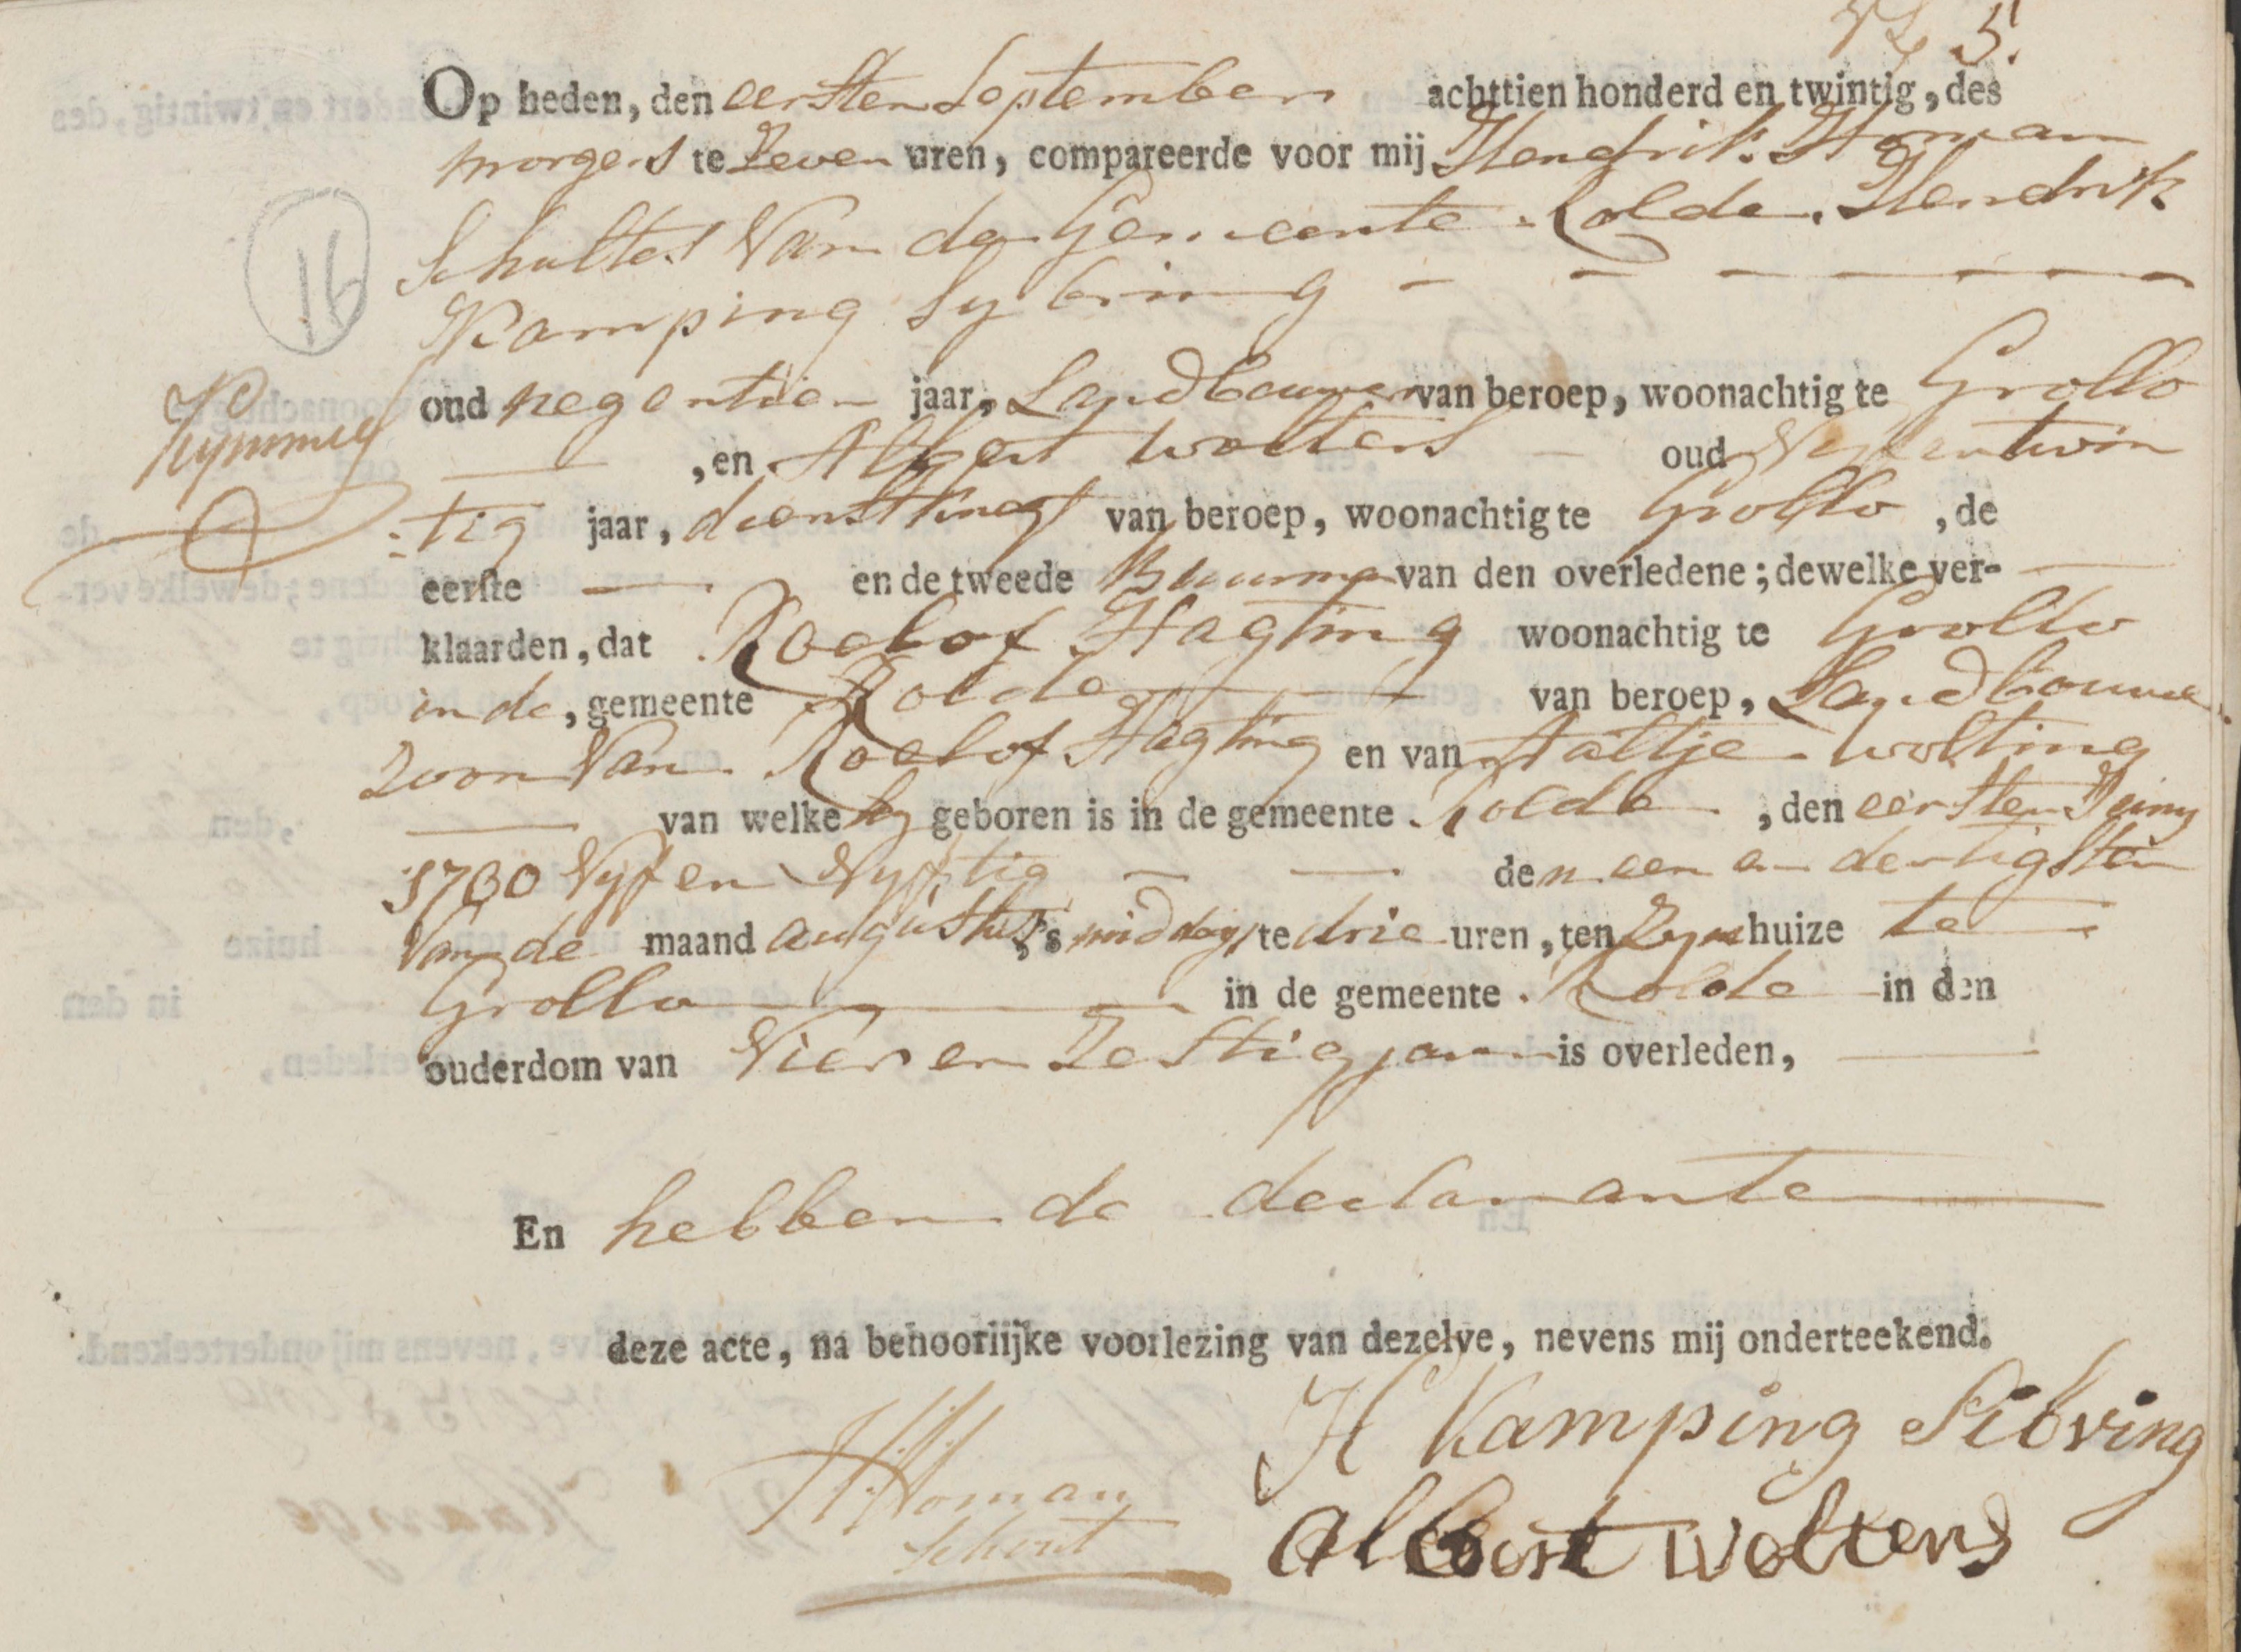 N 5.
Op heden, den eersten September achttien honderd en twintig, des
morgens te Zeven uren, compareerde voor mij Hendrik Homan
Schultes Van de Gemeente Rolde. Hendrik
Kamping Sybring
16
oud negentien jaar, Landbouwer van beroep, woonachtig te Grollo
, en Albert Wolters oud Vyfentwin
:tig jaar, dienstknegt van beroep, woonachtig te Grollo, de
eerste en de tweede Buurman van den overledene; dewelke ver-
klaarden, dat Roelof Hagting woonachtig te Grollo
in de, gemeente Rolde van beroep, Landbouwer
Zoon Van Roelof Hagting en van Aaltje Wolting
van welke hy geboren is in de gemeente Rolde, den eersten Juny
1700 Vyf en Vyftig den een en dertigsten
Van de maand augustus, 's middags te drie uren, ten Zyn huize te
Grollo in de gemeente Rolde in den
ouderdom van Vier en Zestig jaren is overleden,
En hebben de declarante
deze acte, na behoorlijke voorlezing van dezelve, nevens mij onderteekend.
H Kamping Sibring
HHoman
Schout
Albert Wolters